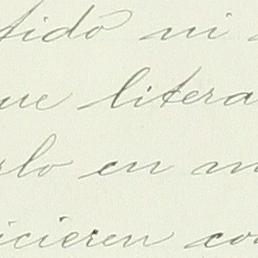 tido ni
ue litera
rlo en m
icieren co